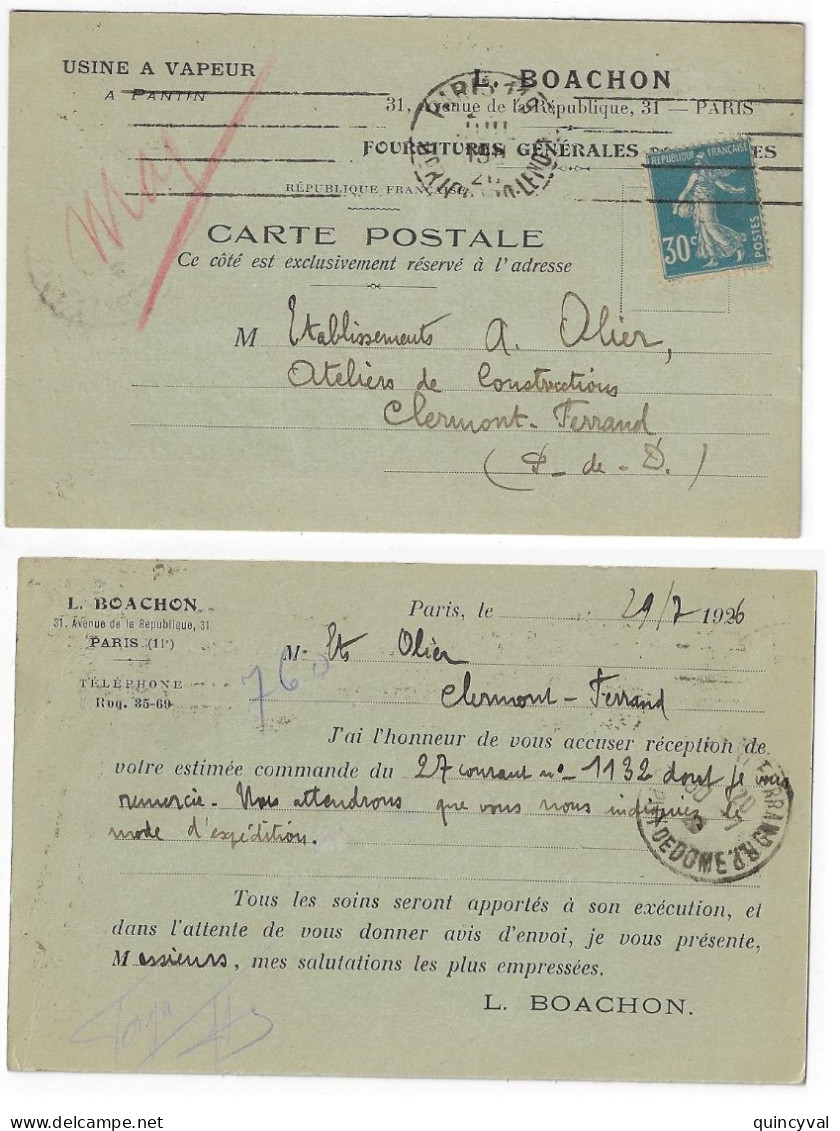 USINE A VAPEUR
A PANTIN
L. BOACHON
31, Avenue de la République, 31 — PARIS
FOURNITURES GÉNÉRALES
RÉPUBLIQUE FRANÇAISE
REPUBLIQUE FRANÇAISE
30c
POSTES
CARTE POSTALE
Ce côté est exclusivement réservé à l'adresse
M Etablissements A. Olier,
Ateliers de Constructions
Clermont-Ferrand
(P-de-D.)
L. BOACHON
31, Avenue de la République, 31
PARIS (11e)
TÉLÉPHONE
Roq. 35-69
760
Paris, le 29/7 1926
M Ets Olier
Clermont-Ferrand
J'ai l'honneur de vous accuser réception de
votre estimée commande du 27 courant no- 1132 dont je vous
remercie. Nous attendrons que vous nous indiquiez le
mode d'expédition.
FERRAND R.P.
PUY DE DOME
Tous les soins seront apportés à son exécution, et
dans l'attente de vous donner avis d'envoi, je vous présente,
Messieurs, mes salutations les plus empressées.
L. BOACHON.
quincyval